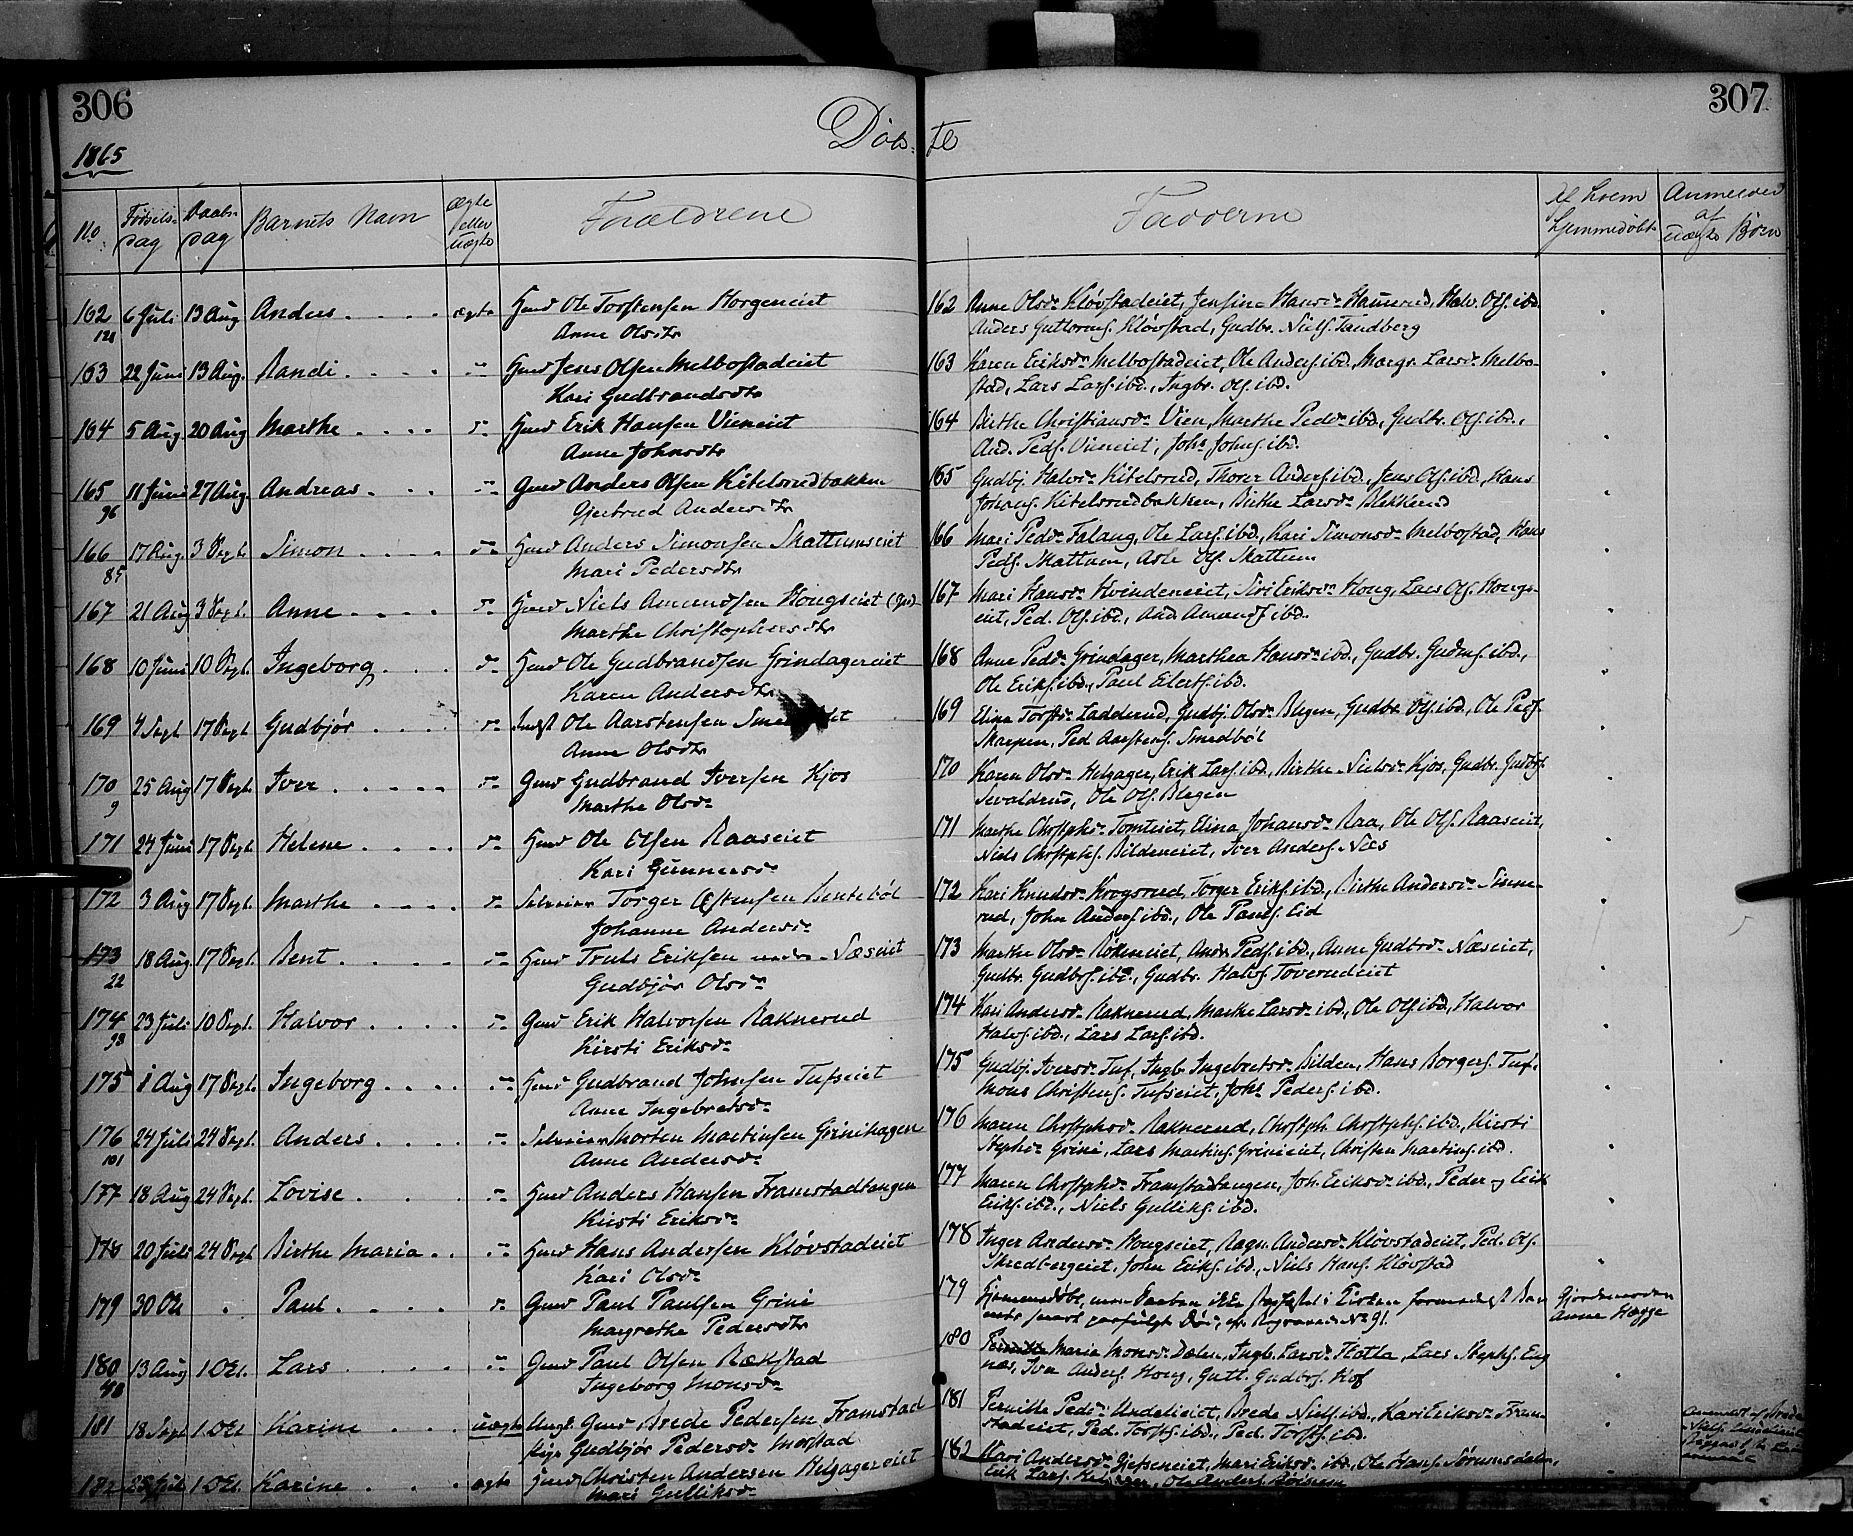 306
307
1865
Døb-
te
No
Fødsels-
dag
Daabs-
dag
Barnets Navn
Ægte
eller
Uægte
Forældrene
Fadderne
Af hvem
hjemmedøbt
Anmeldes
af
Uægte Børn
162 6 Juli 13 Aug Anders . . . . ægte Huusd Ole Torstensen Horgeneiet
121 Anne Olsdtr
163 22 Juni 13 Aug. Randi . . . . Huusd Jens Olsen Melbostadeiet
Kari Gudbrandsdtr
164 5 Aug 20 Aug Marthe . . . . Huusd Erik Hansen Vieneiet
Anne Johnsdtr
165 11 Juni 27 Aug. Andreas . . . Gaard Anders Olsen Kittelsrudbakken
96 Gjertrud Andersdtr
166 17 Aug. 3 Sept. Simon . . . . Huusd Anders Simonsen Skattumseiet
85 Mari Pedersdtr
167 21 Aug 3 Sept. Anne . . . . Huusd Niels Amundsen Hougseiet
Marthe Christophersdtr
168 10 Juni 10 Sept. Ingeborg . . . Huusd Ole Gudbrandsen Grindagereiet
Karen Andersdtr
169 4 Sept 17 Sept Gudbjør . . . . Ole Aarstensen
Anne Olsdtr
170 25 Aug 17 Sept. Iver . . . . . Gaard Gudbrand Iversen Kjos
9 Marthe Olsdr
171 24 Juni 17 Sept. Helene . . . . Huusd Ole Olsen Raaseiet
Kari Gunnersdr
172 3 Aug 17 Sept. Marthe . . . . Selveier Torger Østensen Bentebøl
Johanne Andersdr
173 18 Aug 17 Sept. Bent . . . . Huusd Truls Eriksen under Næseiet
22 Gudbjør Olsdr
174 23 Juli 10 Sept. Halvor . . . . Gaard Erik Halvorsen Raknerud
93 Kirsti Eriksdr
175 1 Aug 17 Sept. Ingeborg . . . . Huusd Gudbrand Johnsen Tufseiet
Anne Ingebretsdr
176 24 Juli 24 Sept. Anders . . . . Selveier Morten Martinsen Grinihagen
101 Anne Andersdr
177 18 Aug 24 Sept. Lovise . . . Huusd Anders Hansen Framstadtangen
Kirsti Eriksdr
178 20 Juli 24 Sept. Birthe Maria . . Huusd Hans Andersen Kløvstadeiet
Kari Olsdr
179 30 Paul . . . . Gaard Paul Paulsen Grini
Margrethe Pedersdtr
180 13 Aug 1 Oct. Lars . . . . Gaard Paul Olsen Rækstad
48 Ingeborg Monsdr
181 18 Sept 1 Oct Karine . . . uægte Ungk. Gaard Brede Pedersen Framstad
Pige Gudbjør Pedersdr Morstad
182 1 Oct. Karine . . . ægte Huusd Christen Andersen Helgagereiet
Mari Gulliksdr
162 Anne Olsdr Kløvstadeiet, Jensine Hansdr Haverud, Halv. Ols. ibd.
Anders Guttorms. Kløvstad, Gudbr. Niels. Tandberg
163 Karen Eriksdr Melbostadeiet, Ole Anders. ibd., Margr. Larsdr Melbo-
stad, Lars Lars. ibd., Ingbr. Ols. ibd.
164 Birthe Christiansdr Vien, Marthe Pedsdr ibd., Gudbr. Ols. ibd.,
And. Peds. Vieneiet, John Johns. ibd.
165 Gudbj. Halvdr Kittelsrud, Thorer Anders. ibd., Jens Ols. ibd., Hans
Johans. Kittelsrudbakken, Birthe Larsdr Blakkerud
166 Mari Pedsdr Falang, Ole Lars. ibd., Kari Simonsdr Melbostad, Hans
Peds. Skattum, Asle Ols. Skattum
167 Mari Hansdr Hvindeneiet, Siri Eriksdr Houg, Lars Ols. Hougs-
eiet, Ped. Ols. ibd., And. Amunds. ibd.
168 Anne Pedsdr Grindager, Marthea Hansdr ibd., Gudbr. Gudms. ibd.,
Ole Eriks. ibd., Paul Eilerts. ibd.
169 Elina Torstdr Ladderud, Gudbj. Olsdr Bugen, Gudbr. Ols. ibd., Ole Peds.
Skarpen, Ped Aarstens. Smedbøl
170 Karen Olsdr Helgager, Erik Lars. ibd., Birthe Nielsdr Kjos, Gudbr. Gudbrs.
Sevaldrud, Ole Ols. Blegen
171 Marthe Chrstphdr Tomteiet, Elina Johansdr Raa, Ole Ols. Raaseiet,
Niels Chrstphs. Bildeneiet, Iver Anders. Næs
172 Kari Knudsdr Krogsrud, Torger Eriks. ibd., Birthe Andersdr Simen-
rud, John Anders. ibd., Ole Pauls. Eid
173 Marthe Olsdr Røkeneiet, Andr. Peds. ibd., Anne Gudbrdr Næseiet,
Gudbr. Gudbrs. ibd., Gudbr. Halvs. Toverudeiet
174 Kari Andersdr Raknerud, Marthe Larsdr ibd., Ole Ols. ibd., Halvor
Halvs. ibd., Lars Lars. ibd.
175 Gudbj. Iversdr Tuf, Ingb. Ingebretsdr Bilden, Hans Borgers. Tuf,
Mons Christens. Tufseiet, Johs Peders. ibd.
176 Maren Chrstphdr Raknerud, Chrstph. Chrstphs. ibd., Kirsti
Stephdr Grini, Lars Martins. Grinieiet, Christen Martins. ibd.
177 Maren Chrstphdr Framstadtangen, Joh. Eriksdr ibd., Peder og Erik
Eriks. ibd., Niels Gulliks. ibd.
178 Inger Andersdr Hougseiet, Ragn. Andersdr Kløvstadeiet, Ped. Ols.
Skredbergeiet, John Eriks. ibd., Niels Hans. Kløvstad
179 Hjemmedøbt, men Daaben ikke stadfæstet i Kirken formedelst Bar-
nets snart paafulgte Død, cfr. Begravede No 91.
Gjordemoderen
Anne Hægge
180 Maria Monsdr Dælen, Ingb. Larsdr Hotla, Lars Stephs. Eng-
næs, Iver Anders. Houg, Gutt. Gudbrs. Hof
181 Pernille Pedsdr Undelieiet, Brede Niels. ibd., Kari Eriksdr Fram-
stadeiet, Ped. Torsts. ibd., Ped. Torsts. ibd.
182 Kari Andersdr Gjefseneiet, Mari Eriksdr ibd., Ole Hans. Sørumsdalen,
Erik Lars. Ole Anders.